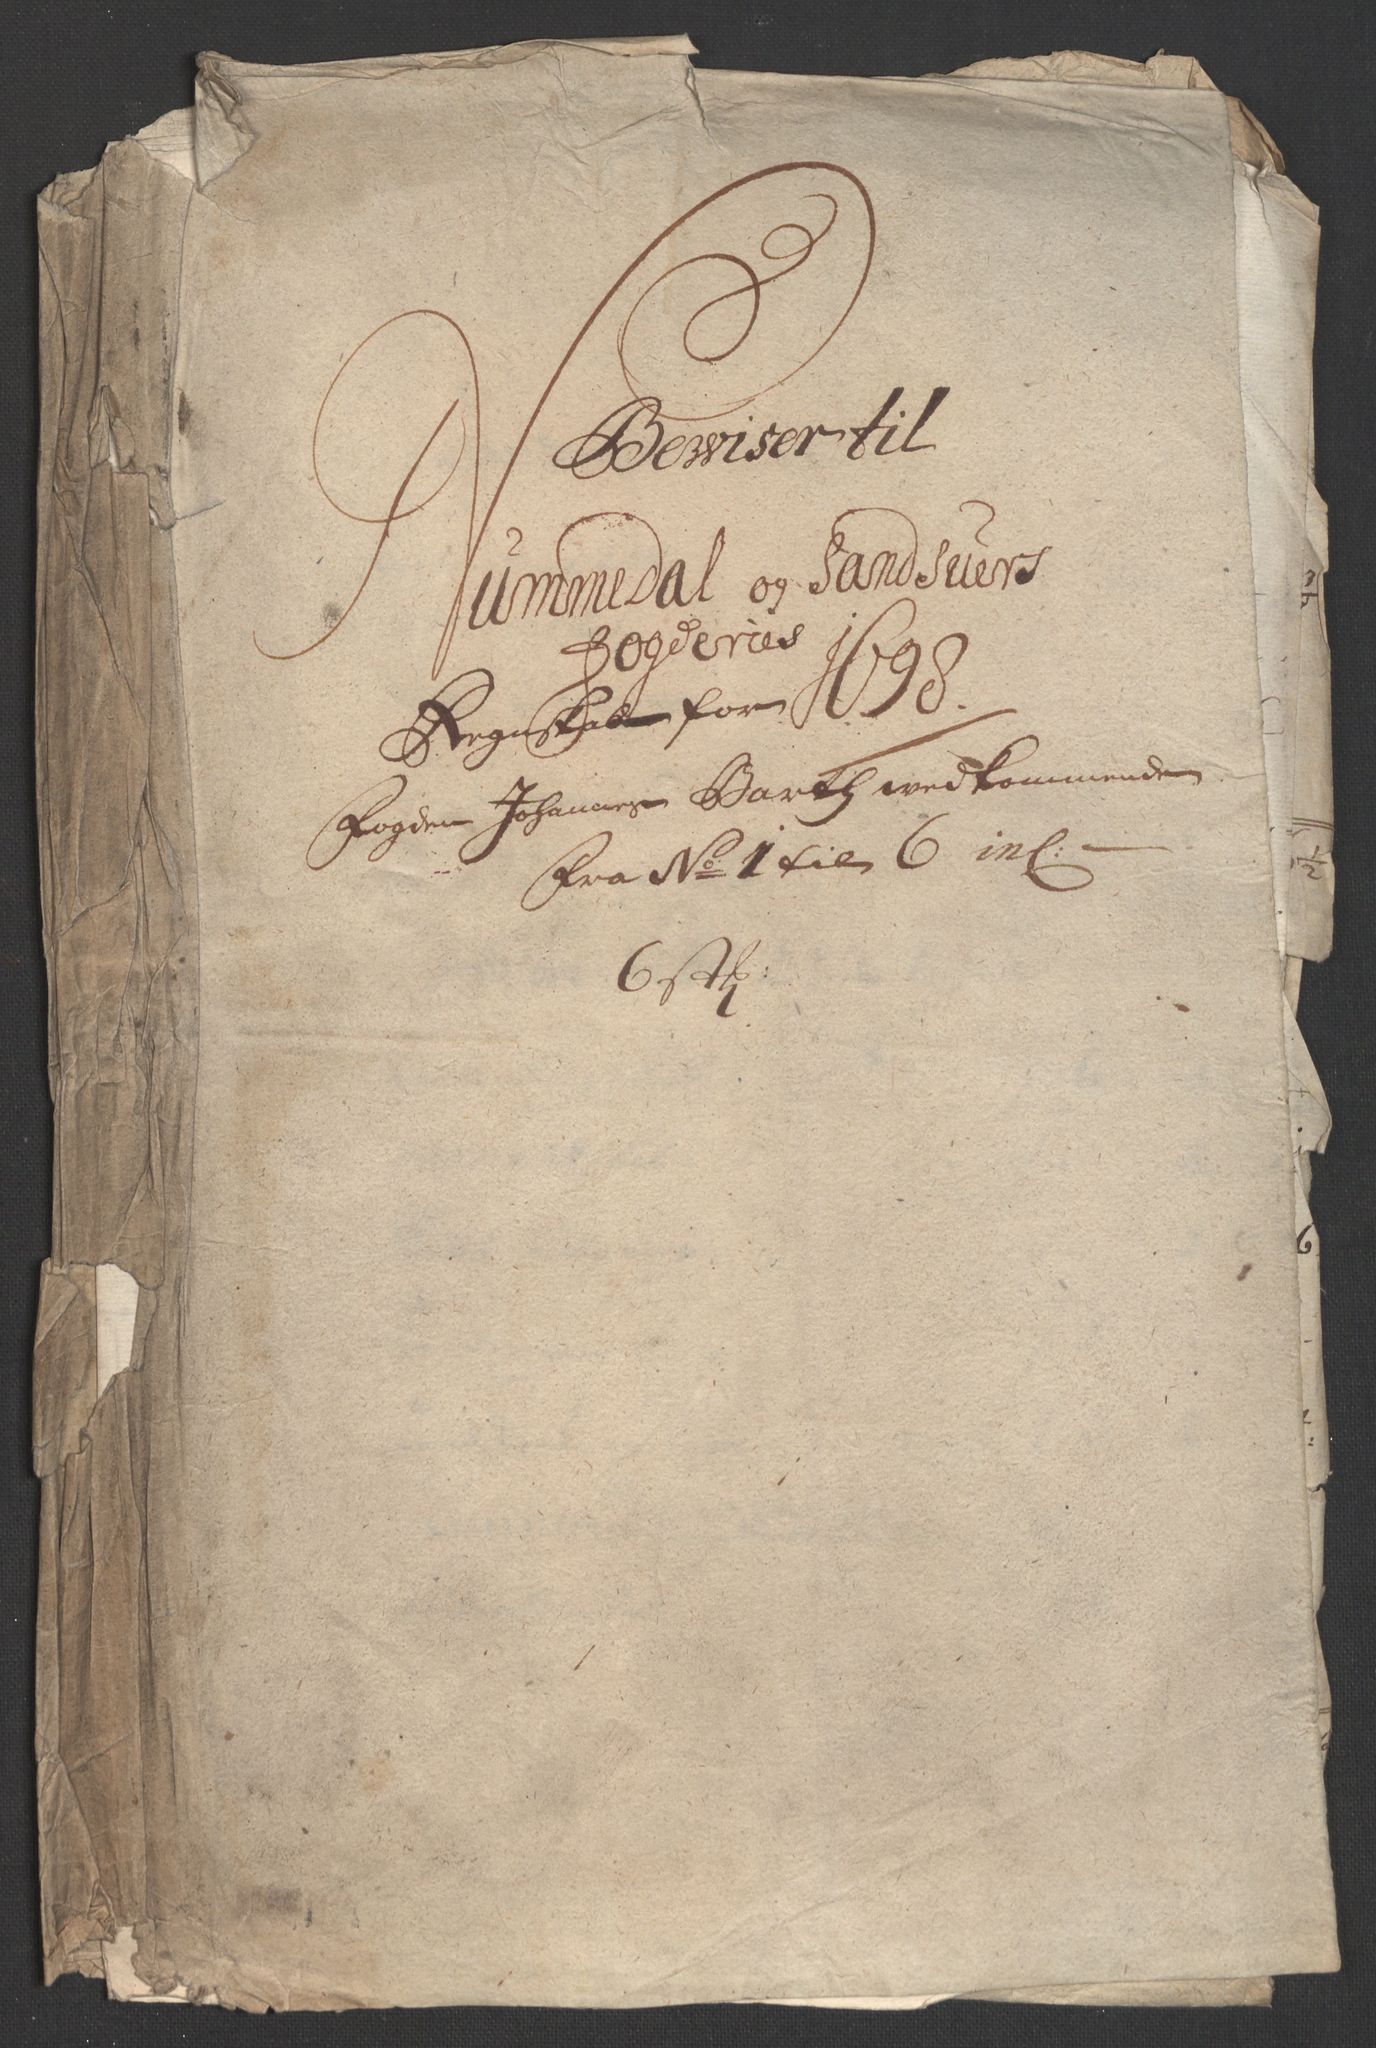 Bewiser til
Nummedal og Sandsuers
Fogderies
Regnskab for 1698.
Fogden Johannes Barth wedkommende
Fra No 1 til 6 incl:
6 stk: